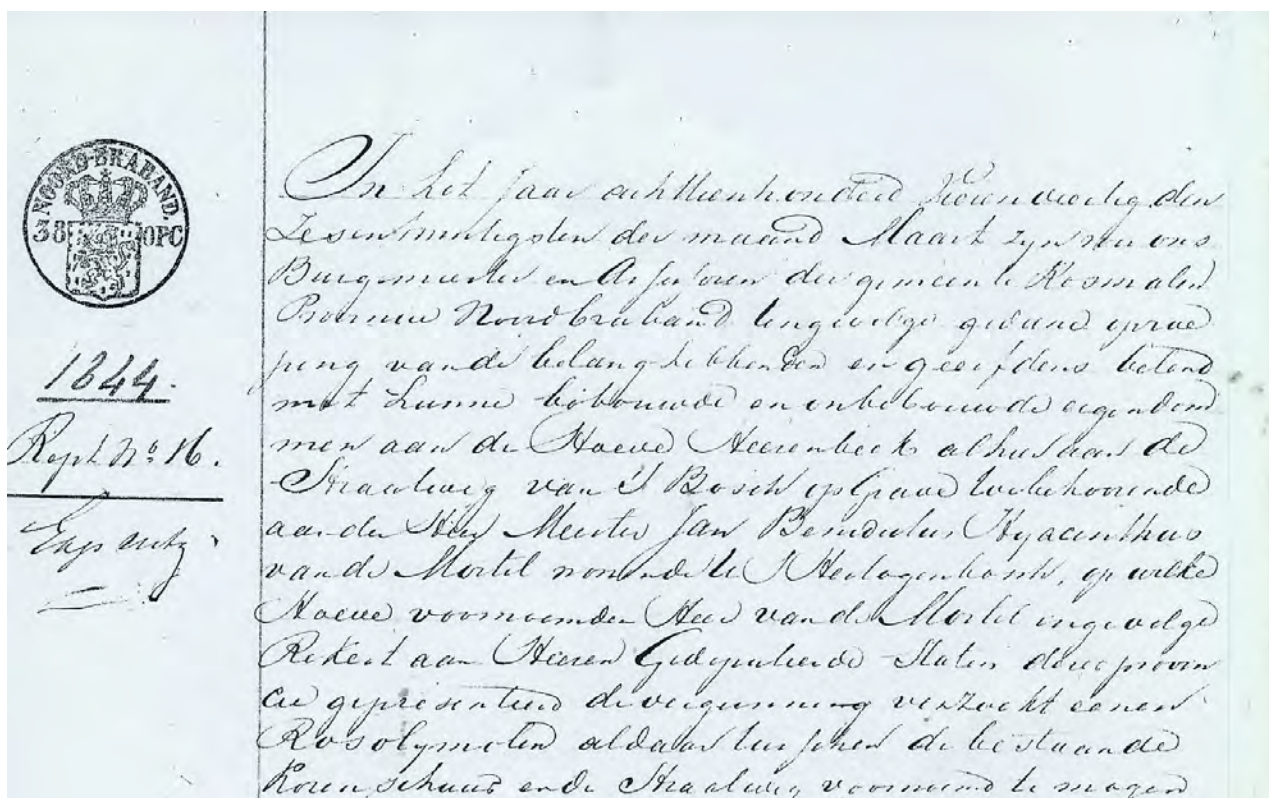 NOORD-BRABAND.
38 OPC
1844.
Rept. No 16.
In het jaar achttienhonderd vierenveertig den
Zesentwintigsten der maand Maart zijn voor ons
Burgemeester en Assessoren der gemeente Rosmalen
Provincie Noordbraband tengevolge gedane oproe
ping van de belanghebbenden en geerfdens belend
met hunne bebouwde en onbebouwde eigendom
men aan de Hoeve Heerenbeek alhier aan de
Straatweg van 's Bosch op Grave toebehoorende
aan den Heer Meester Jan Benedictus Hyacinthus
van de Mortel wonende te 's Hertogenbosch, op welke
Hoeve voornoemden Heer van de Mortel ingevolge
Rekest aan Heeren Gedeputeerde Staten dezer provin
cie gepresenteerd de vergunning verzocht eenen
Rosolymolen aldaar tusschen de bestaande
Koren schuur en de Straatweg voornoemd te mogen